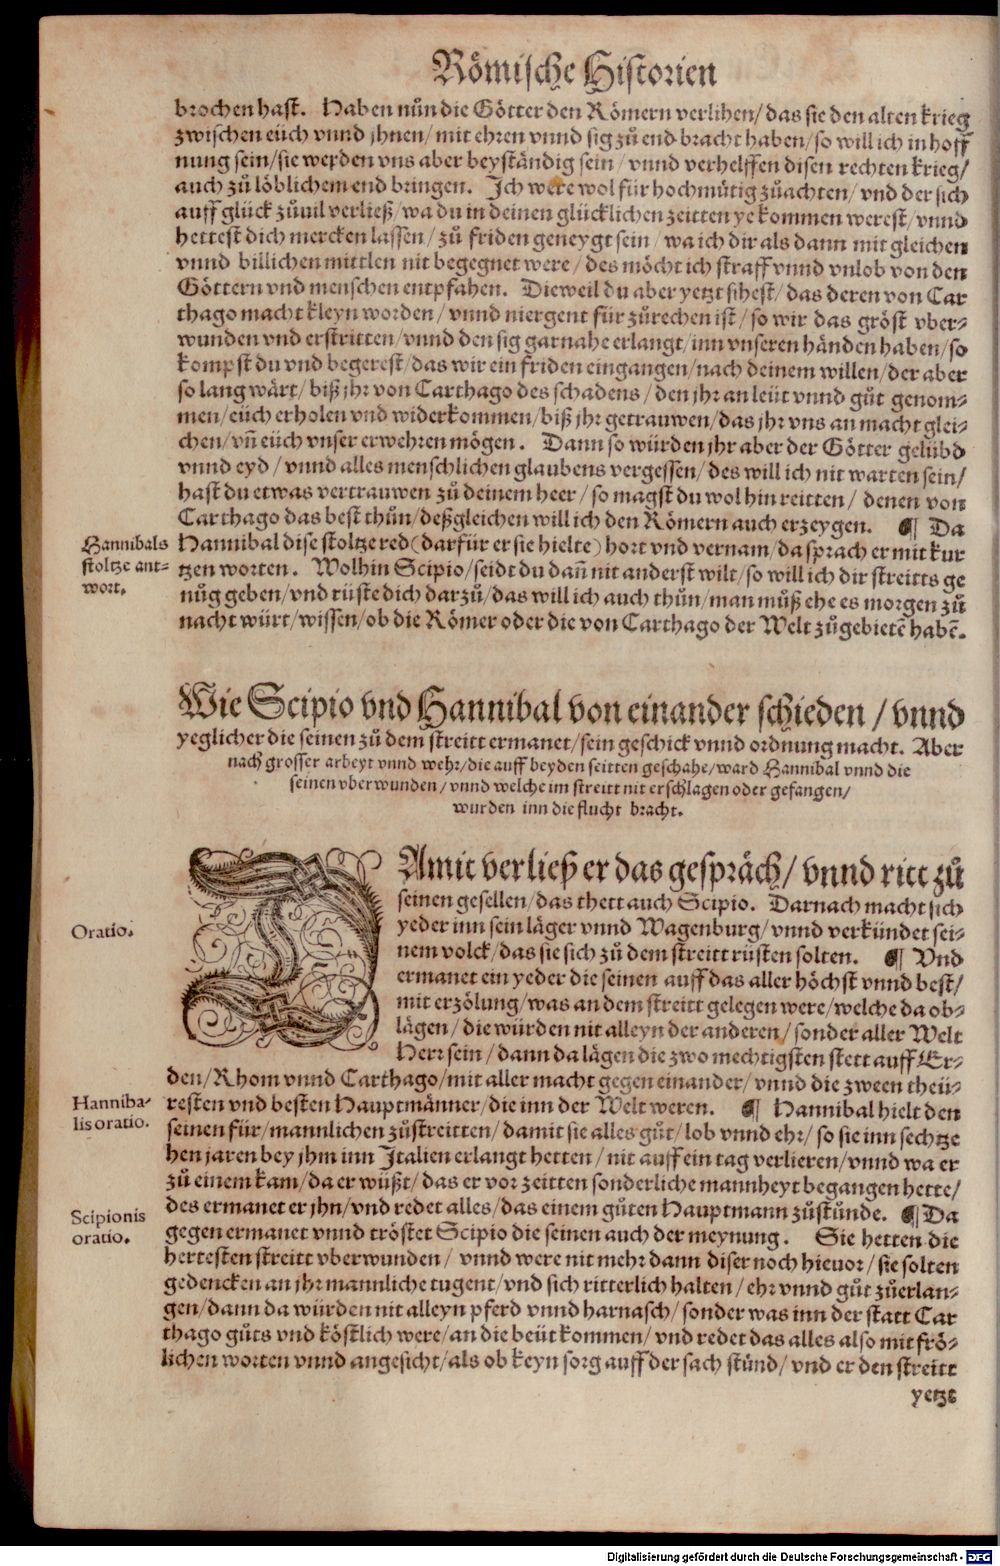 Römische Historien
brochen hast. Haben nůn die Götter den Römern verlihen/ das sie den alten krieg
zwischen eüch vnnd jhnen/ mit ehren vnnd sig zů end bracht haben/ so will ich in hoff
nung sein/ sie werden vns aber beyständig sein/ vnnd verhelffen disen rechten krieg/
auch zů löblichem end bringen. Ich were wol für hochmütig zůachten/ vnd der sich
auff glück zůuil verließ/ wa du in deinen glücklichen zeitten ye kommen werest/ vnnd
hettest dich mercken lassen/ zů friden geneygt sein/ wa ich dir als dann mit gleichen
vnnd billichen mittlen nit begegnet were/ des möcht ich straff vnnd vnlob von den
Göttern vnd menschen entpfahen. Dieweil du aber yetzt sihest/ das deren von Car
thago macht kleyn worden/ vnnd niergent für zůrechen ist/ so wir das gröst vber-
wunden vnd erstritten/ vnnd den sig gar nahe erlangt/ inn vnseren händen haben/ so
kompst du vnd begerest/ das wir ein friden eingangen/ nach deinem willen/ der aber
so lang wärt/ biß jhr von Carthago des schadens/ den jhr an leüt vnnd gůt genom-
men/ eüch erholen vnd widerkommen/ biß jhr getrauwen/ das jhr vns an macht glei-
chen/ vñ eüch vnser erwehren mögen. Dann so würden jhr aber der Götter gelübd
vnnd eyd/ vnnd alles menschlichen glaubens vergessen/ des will ich nit warten sein/
hast du etwas vertrauwen zů deinem heer/ so magst du wol hin reitten/ denen von
Carthago das best thůn/ deßgleichen will ich den Römern auch erzeygen. ¶ Da
Hannibals
stoltze ant-
wort.
Hannibal dise stoltze red (darfür er sie hielte) hort vnd vernam/ da sprach er mit kur
tzen worten. Wolhin Scipio/ seidt du dañ nit anderst wilt/ so will ich dir streitts ge
nůg geben/ vnd rüste dich darzů/ das will ich auch thůn/ man můß ehe es morgen zů
nacht würt/ wissen/ ob die Römer oder die von Carthago der Welt zůgebietẽ habẽ.
Wie Scipio vnd Hannibal von einander schieden/ vnnd
yeglicher die seinen zů dem streitt ermanet/ sein geschick vnnd ordnung macht. Aber
nach grosser arbeyt vnnd wehr/ die auff beyden seitten geschahe/ ward Hannibal vnnd die
seinen vberwunden/ vnnd welche im streitt nit erschlagen oder gefangen/
wurden inn die flucht bracht.
DAmit verließ er das gespräch/ vnnd ritt zů
seinen gesellen/ das thett auch Scipio. Darnach macht sich
Oratio.
yeder inn sein läger vnnd Wagenburg/ vnnd verkündet sei-
nem volck/ das sie sich zů dem streitt rüsten solten. ¶ Vnd
ermanet ein yeder die seinen auff das aller höchst vnnd best/
mit erzölung/ was an dem streitt gelegen were/ welche da ob-
lägen/ die würden nit alleyn der anderen/ sonder aller Welt
Herr sein/ dann da lägen die zwo mechtigsten stett auff Er-
den/ Rhom vnnd Carthago/ mit aller macht gegen einander/ vnnd die zween theü-
Hanniba-
lis oratio.
resten vnd besten Hauptmänner/ die inn der Welt weren. ¶ Hannibal hielt den
seinen für/ mannlichen zůstreitten/ damit sie alles gůt/ lob vnnd ehr/ so sie inn sechtze
hen jaren bey jhm inn Italien erlangt hetten/ nit auff ein tag verlieren/ vnnd wa er
zů einem kam/ da er wüßt/ das er vor zeitten sonderliche mannheyt begangen hette/
des ermanet er jhn/ vnd redet alles/ das einem gůten Hauptmann zůstünde. ¶ Da
Scipionis
oratio.
gegen ermanet vnnd tröstet Scipio die seinen auch der meynung. Sie hetten die
hertesten streitt vberwunden/ vnnd were nit mehr dann diser noch hieuor/ sie solten
gedencken an jhr mannliche tugent/ vnd sich ritterlich halten/ ehr vnnd gůt zůerlan-
gen/ dann da würden nit alleyn pferd vnnd harnasch/ sonder was inn der statt Car
thago gůts vnd köstlich were/ an die beüt kommen/ vnd redet das alles also mit frö-
lichen worten vnnd angesicht/ als ob keyn sorg auff der sach stünd/ vnd er den streitt
yetzt
Digitalisierung gefördert durch die Deutsche Forschungsgemeinschaft - DFG